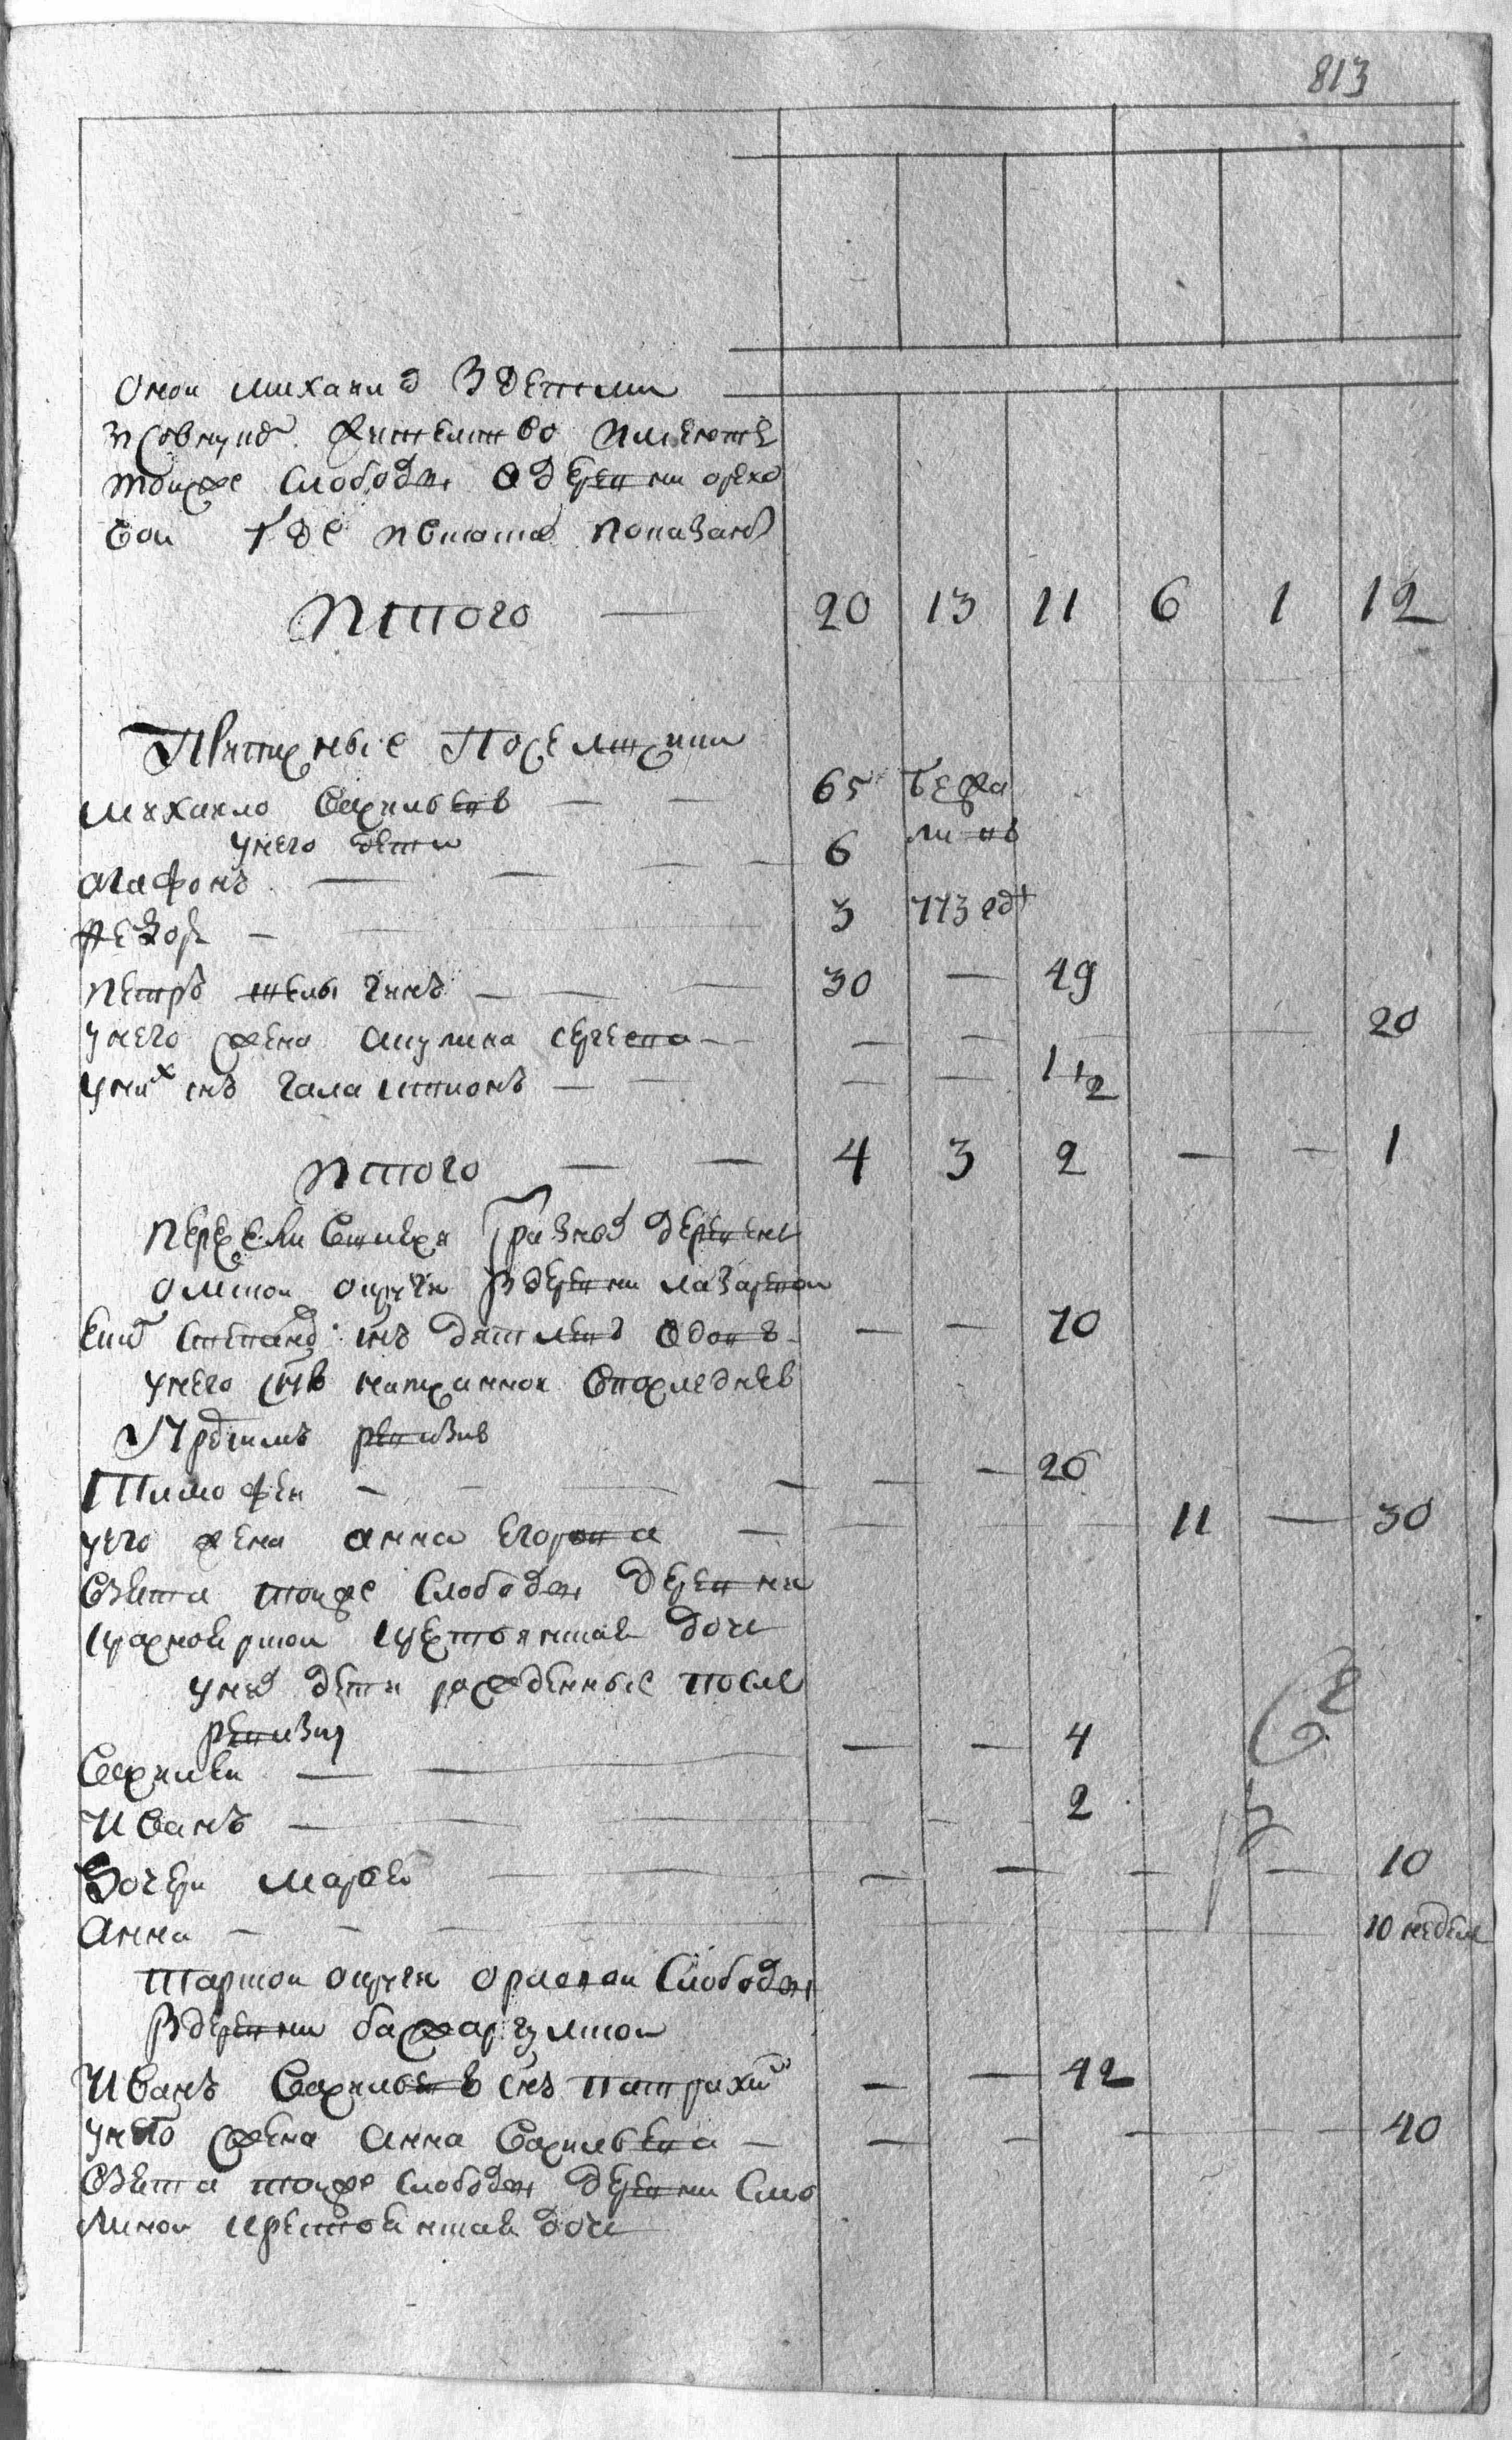 813
Оной михаила З детми
и совнуки жителство имеютъ
тойже слободы вдеревни орехо
вой где ивитогъ показанъ
Итого — 20 13 11 6 1 12
Пятижные Поселщики
Михайло Васильевъ — — 65 бежа
унего дети линъ
агафонъ — — — 6
Федоръ — 3 773 год
петръ телы гинъ — — — 30 — 49
унего жена акулина сергеева — — — — 20
уних снъ галактионъ — — — — 1 1/2
Итого — — 4 3 2 — — 1
Переехали разной деревни
омской округи вдеревни лазаревой
степановъ снъ дятлевъ вдовъ — — 70
унего снъ написанной впоследнев
ревизие
Тимофей — — — — — 26
унего жена анна егорова — 11 — 30
взята тойже слободы деревни
красноярской крестьянская дочь
уних дети рожденные после
ревизии
Василей — — — — 4
Иванъ — — 2
Дочери марья — — — — — 10
Анна — — — 10 недель
тарской округи орловой слободы
вдеревни
Иванъ Васильевъ снъ патрахин — — 42
унего жена анна Васильевна — — — — — 40
взята тойже слободы деревни смо
линой крестьянская дочь